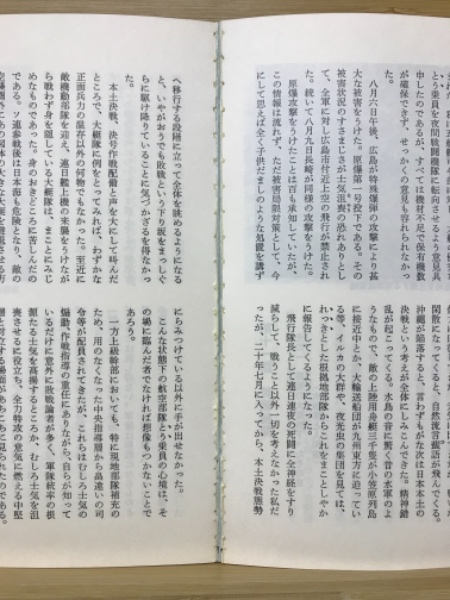 とう乗員を夜間戦闘機隊に転向させるよう意見具
申したのであるが、すべては機材不足で保有機数
が確保できず、せっかくの意見も容れられなかっ
た。
八月六日午後、広島が特殊爆弾の攻撃により甚
大な被害をうけた。原爆第一号投下である。その
被害状況のすさまじさが士気沮喪の恐れありとし
て、全軍に対し広島市付近上空の飛行が禁止され
た。続いて八月九日長崎が同様の攻撃をうけた。
原爆攻撃をうけたことは百も承知していたが、
この情報は流れず、ただ被害局限対策として、今
にして思えば全く子供だましのような処置を講ず
閑散になってくると、自然流言蜚語が飛んでくる。
沖縄が陥落すると、言わずもがな次は日本本土の
決戦という考えが全体にしみこんできた。精神錯
乱が起こってくる。水鳥の音に驚く昔の水軍のよ
うなもので、敵の上陸用舟艇三千隻が小笠原列島
に接近中とか、大輸送船団が九州東方に迫ってい
る等、イルカの大群や、夜光虫の集団を見ては、
れっきとした根拠地部隊からこれをまことしやか
に報告してくれるからである。
飛行隊長として連日連夜の死闘に全神経をすり
減らして、戦うこと以外一切を考えなかった私だ
ったが、二十年七月に入ってから、本土決戦態勢
へ移行する段階に立って全体を眺めるようになる
と、いやがおうでも敗戦という下り坂をまっしぐ
らに駆け降りていることに気づかざるを得なかっ
た。
本土決戦、決号作戦配備と声を大にして叫んだ
ところで、大艇隊に例をとってみれば、わずかな
正面兵力の温存以外の何物でもなかった。至近に
敵機動部隊を迎え、連日艦上機の来襲をうけなが
ら戦わず身を隠している大艇隊は、まことにみじ
めなものであった。身のおきどころに苦しんだの
である。ソ連参戦後は日本海も危険となり、敵の
にらみつけている以外に手が出せなかった。
こんな状態下の航空部隊とう乗員の心境は、そ
の場に臨んだ者でなければ想像もつかないことで
あろう。
一方上級幹部においても、特に現地部隊補充の
ため、用のなくなった中央指導層から島違いの司
令等が配員されてきたが、これらはむしろ士気の
煽動、作戦指導の重任にありながら、自らが知って
いるだけに意外に敗戦論者が多く、軍隊統率の根
源たる士気を高揚するどころか、むしろ士気を沮
喪させるに役立ち、全力特攻の意気に燃える中堅